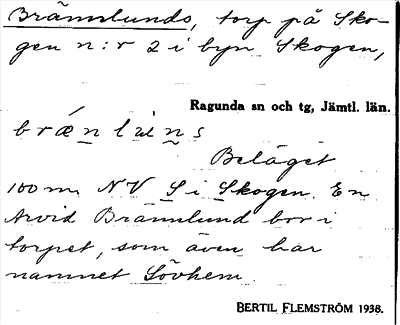 Brännlunds, torp på Sko-
gen n:r 2 i byn Skogen,
Ragunda sn och tg, Jämtl. län.
Beläget
100 m NV S i Skogen. En
Arvid Brännlund bor i
torpet, som även har
namnet Sövhem
BERTIL FLEMSTRÖM 1938.